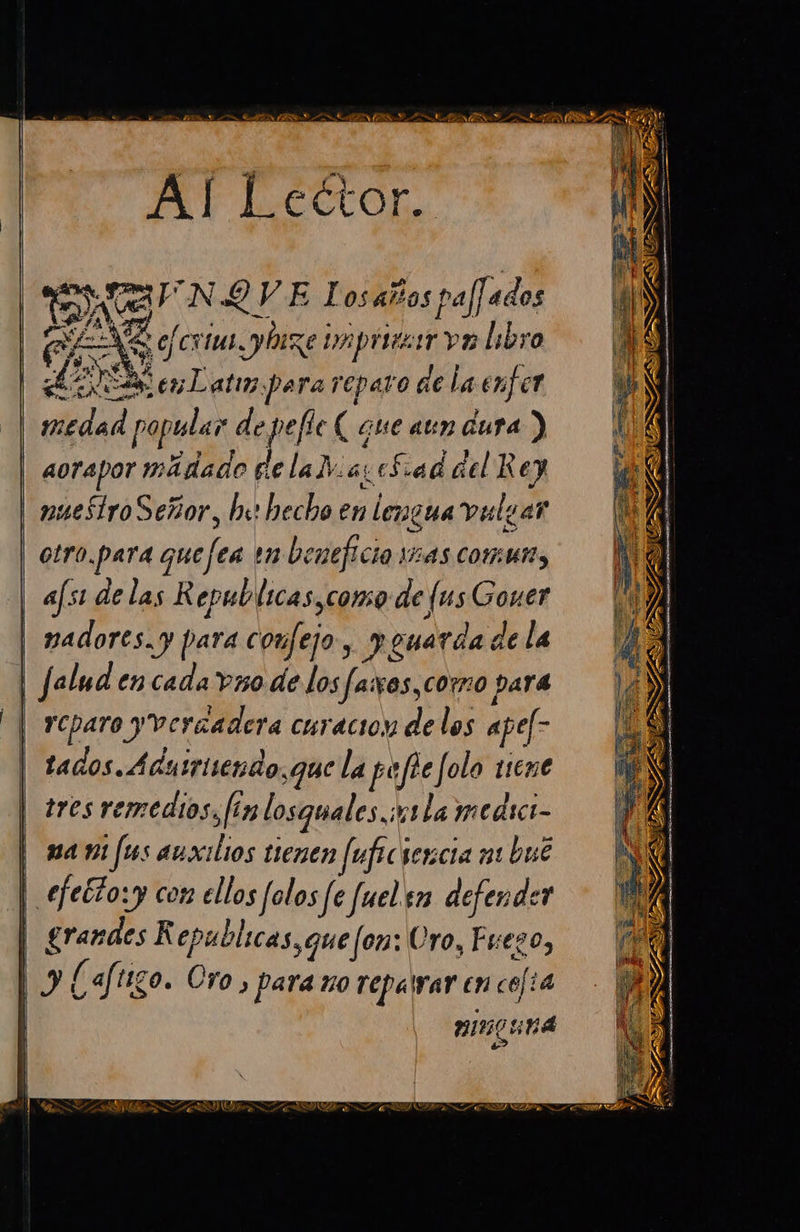 Al Lector.
AVNQVE los años passados
escriui, y hize imprimir vn libro
en Latin, para reparo de la enfer
medad popular de peste ( que aun dura )
aora por mãdado de la Magestad del Rey
nuestro Señor, he hecho en lengua vulgar
otro, para que sea en beneficio mas comun,
assi de las Republicas, como de sus Gouer
nadores. y para consejo, y guarda de la
salud en cada vno de los sanos, como para
reparo y verdadera curacion de los apes-
tados. Aduirtiendo, que la peste solo tiene
tres remedios, sin los quales, ni la medici-
na ni sus auxilios tienen suficiencia ni buẽ
efecto: y con ellos solos se suelen defender
grandes Republicas, que son: Oro, Fuego,
y Castigo. Oro, para no reparar en costa
ninguna